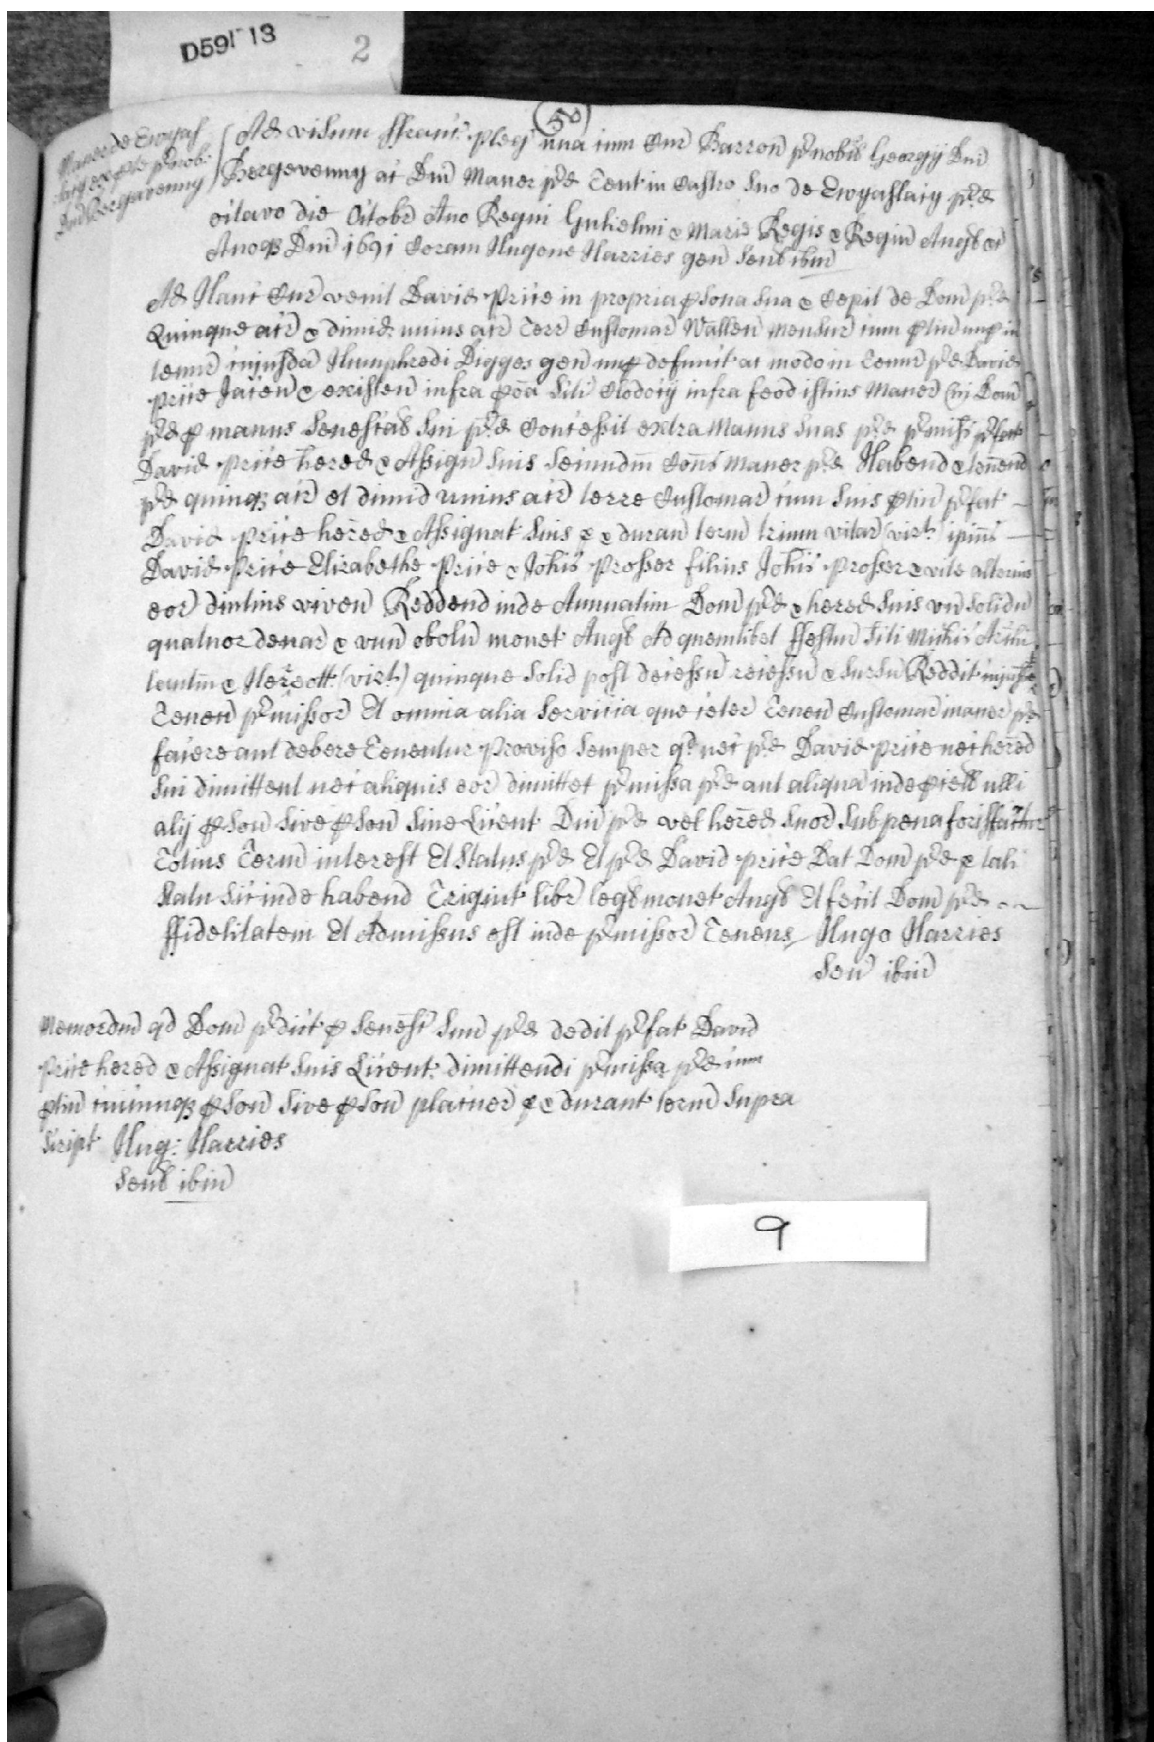 D591 13
2
(50)
Maner de Ewyas
lacy ex pte prnob:
Dni Bergavenny
Ad visum ffranc: pleg una cum Cur Barron prnobis Georgij Dni
Bergevenny ac Dni Maner prd tent in Castro suo de Ewyaslacy prd
octavo die Octobr Ano Regni Gulielmi & Marie Regis & Regin Angl &c
Anoq Dni 1691 Coram Hugone Harries gen Senl ibm
Ad Hanc Cur venit David Price in propria psona sua & Cepit de Dom prd
Quinque acr & dimid unius acr Terr Customar Wallen mensur cum ptin nup in
tenur cujusda Humphredi Digges gen nup defunct ac modo in Tenur prd David
Price Jacen & existen infra poa Sti Clodocij infra feod istius Maner Cuj Dom
prd p manus Senescal sui prd Concessit extra Manus suas prd prmiss prfat
David price hered & Assign suis secundm Cons Maner prd Habend & tenend
prd quinq acr et dimid unius acr terre Customar cum suis ptin prfat
David price hered & Assignat suis & c duran term trium vitar (virt) ipius
David Price Elizabethe Price & Johis Prosser filius Johis Prosser & vite alterius
eor diutius viven Reddend inde Annuatim Dom prd & hered suis un solidu
quatuor denar & unu obolu monet Angl Ad quemlibet ffestu Sti Michis Archi
tantm & Heriott (virt) quinque solid post decessu recessu & sursu Reddit cujusl
Tenen prmissor Et omnia alia Servicia que ceter Tenen Customar maner prd
facere aut debere Tenentur Proviso semper qd nec prd David price nec hered
sui dimittent nec aliquis eor dimittet prmissa prd aut aliqua inde pcell ulli
alij pson sive pson sine Licent Dni prd vel hered suor sub pena forisffactur
Totius Term interest Et Status prd Et prd David price Dat Dom prd p tali
statu sic inde habend Trigint libr legl monet Angl Et fecit Dom prd
ffidelitatem Et Admissus est inde prmissor Tenens Hugo Harries
Sen ibm
Memordm qd Dom prdict p Senesc suu prd dedit prfat David
Price hered & Assignat suis Licent dimittendi prmissa prd cum
ptin cuicunq pson sive pson placuer & c durant term supra
script Hug: Harries
Senl ibm
9